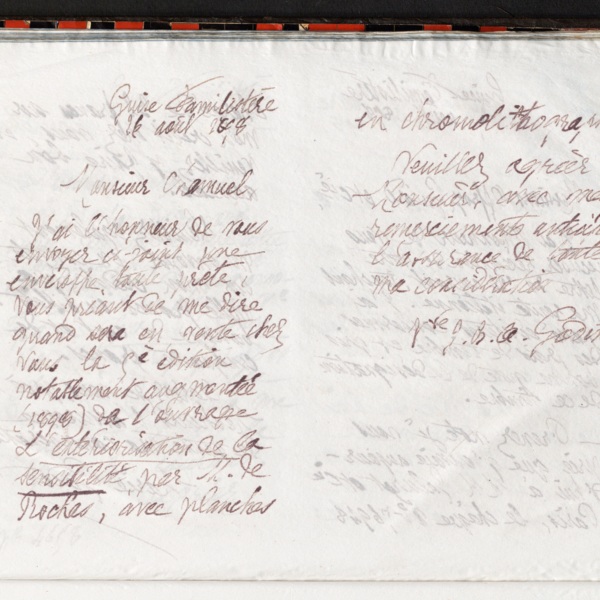 Guise Familistère
26 août 1898
Monsieur Chamuel
J'ai l'honneur de vous
envoyer ci-joint une
enveloppe toute prête
vous priant de me dire
quand sera en vente chez
vous la 5e édition
notablement augmentée
(1898) de l'ouvrage
L'extériorisation de la
sensibilité, par M. de
Rochas, avec planches
en chromolithograp
Veuillez agréer
Monsieur, avec me
remerciements antici
l'assurance de toute
ma considération
Vve J. B. A. Godin